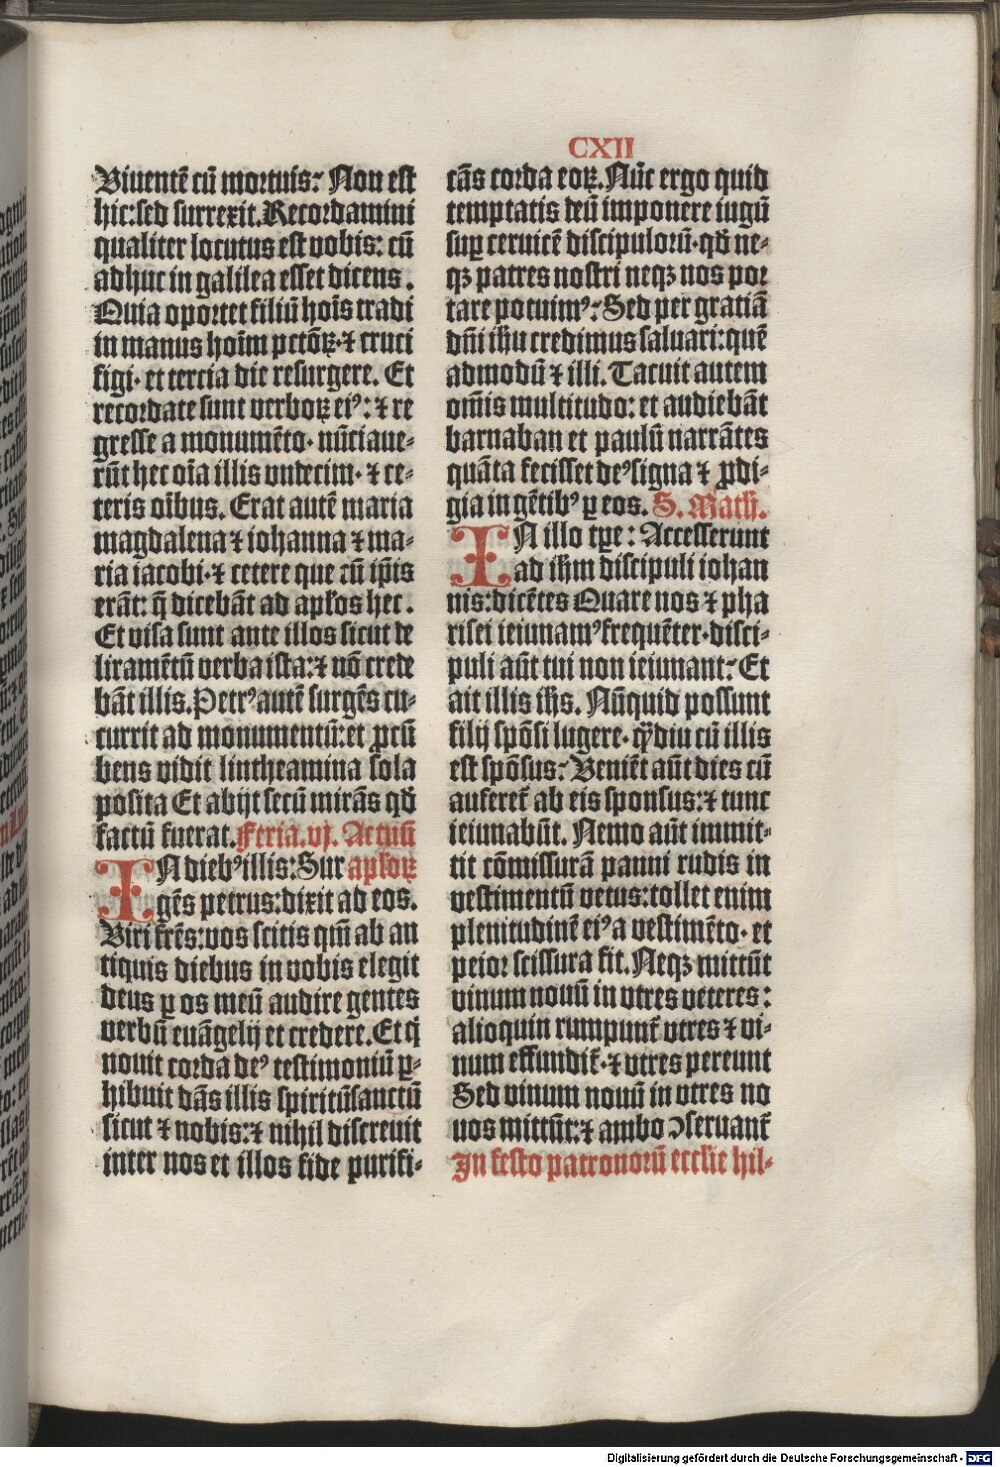 CXII
Viuentē cū mortuis: Non est
hic: sed surrexit. Recordamini
qualiter locutus est vobis: cū
adhuc in galilea esset dicens.
Quia oportet filiū hoīs tradi
in manus hoīm pctōꝝ· ⁊ cruci
figi· et tercia die resurgere. Et
recordate sunt verboꝝ eiꝰ: ⁊ re
gresse a monumēto· nūciaue-
rūt hec oīa illis vndecim· ⁊ ce-
teris oībus. Erat autē maria
magdalena ⁊ iohanna ⁊ ma-
ria iacobi· ⁊ cetere que cū ip̄is
erāt: q̄ dicebāt ad apłos hec.
Et visa sunt ante illos sicut de
liramētū verba ista: ⁊ nō crede
bāt illis. Petrꝰ autē surgēs cu-
currit ad monumentū: et ꝓcū
bens vidit lintheamina sola
posita Et abijt secū mirās qď
factū fuerat. Feria. vj. Actuū
IN diebꝰ illis: Sur apłoꝝ
gēs petrus: dixit ad eos.
Viri fr̄es: vos scitis qm̄ ab an
tiquis diebus in vobis elegit
deus ꝑ os meū audire gentes
verbū euāgelij et credere. Et q̇
nouit corda deꝰ testimoniū ꝑ-
hibuit dās illis spiritūsanctū
sicut ⁊ nobis: ⁊ nihil discreuit
inter nos et illos fide purifi-
cās corda eoꝝ. Nūc ergo quid
temptatis deū imponere iugū
suꝑ ceruicē discipulorū· qď ne-
qꝫ patres nostri neqꝫ nos por
tare potuimꝰ: Sed per gratiā
dn̄i ih̄u credimus saluari: quē
admodū ⁊ illi. Tacuit autem
om̄is multitudo: et audiebāt
barnaban et paulū narrātes
quāta fecisset deꝰ signa ⁊ ꝓdi-
gia in gētibꝰ ꝑ eos. S. Math.
IN illo tꝑe: Accesserunt
ad ih̄m discipuli iohan
nis: dicētes Quare nos ⁊ pha
risei ieiunamꝰ frequēter· disci-
puli aūt tui non ieiunant: Et
ait illis ih̄s. Nūquid possunt
filij spōsi lugere· qꝫdiu cū illis
est spōsus: Veniēt aūt dies cū
auferet᷑ ab eis sponsus: ⁊ tunc
ieiunabūt. Nemo aūt immit-
tit cōmissurā panni rudis in
vestimentū vetus: tollet enim
plenitudinē eiꝰ a vestimēto· et
peior scissura fit. Neqꝫ mittūt
vinum nouū in vtres veteres:
alioquin rumpunt᷑ vtres ⁊ vi-
num effundit᷑· ⁊ vtres pereunt
Sed vinum nouū in vtres no
uos mittūt: ⁊ ambo ↄseruant᷑
In festo patronorū ecclie hil-
Digitalisierung gefördert durch die Deutsche Forschungsgemeinschaft - DFG